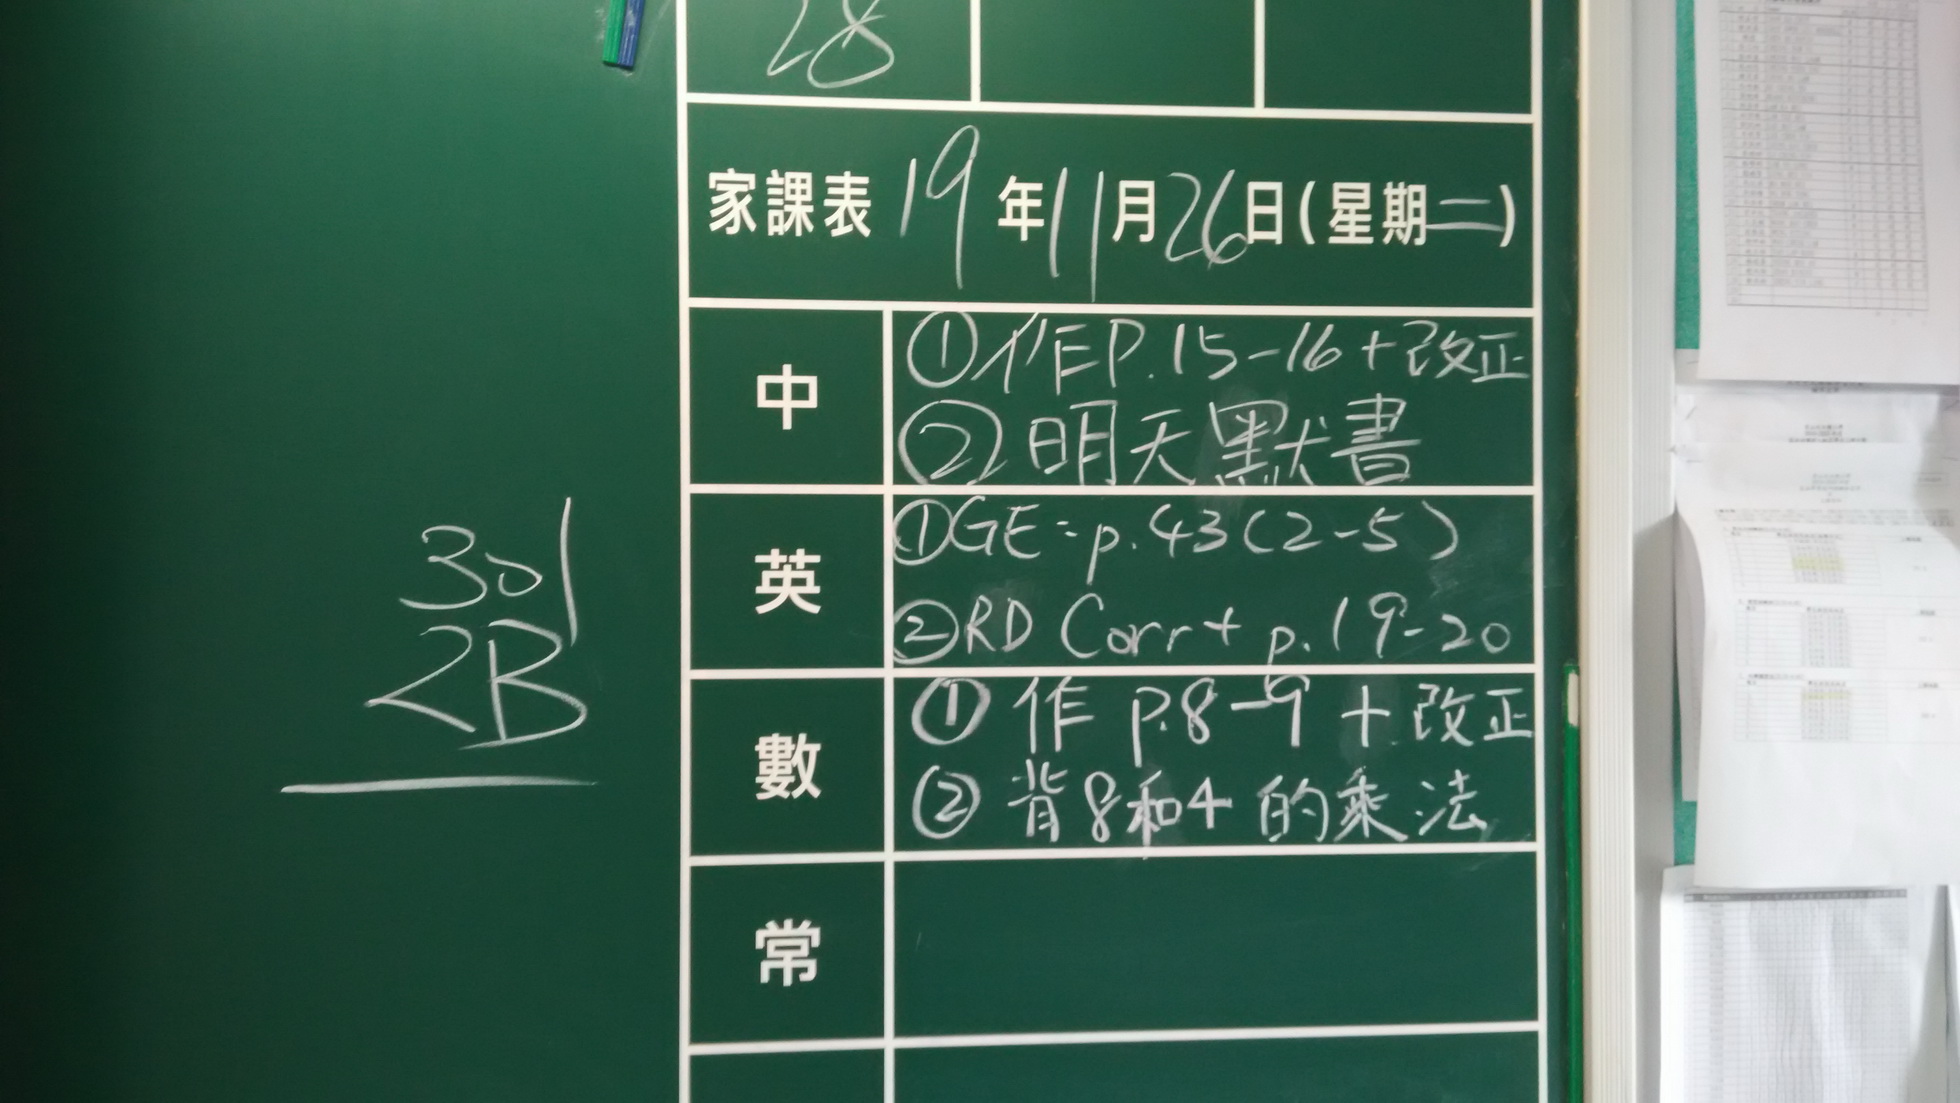 28
家課表 19年11月26日(星期二)
中
①作P.15-16+改正
②明天默書
英
①GE=p.43(2-5)
②RD Corr+ p.19-20
數
①作 p.8-9 + 改正
②背8和4的乘法
常
301
2B